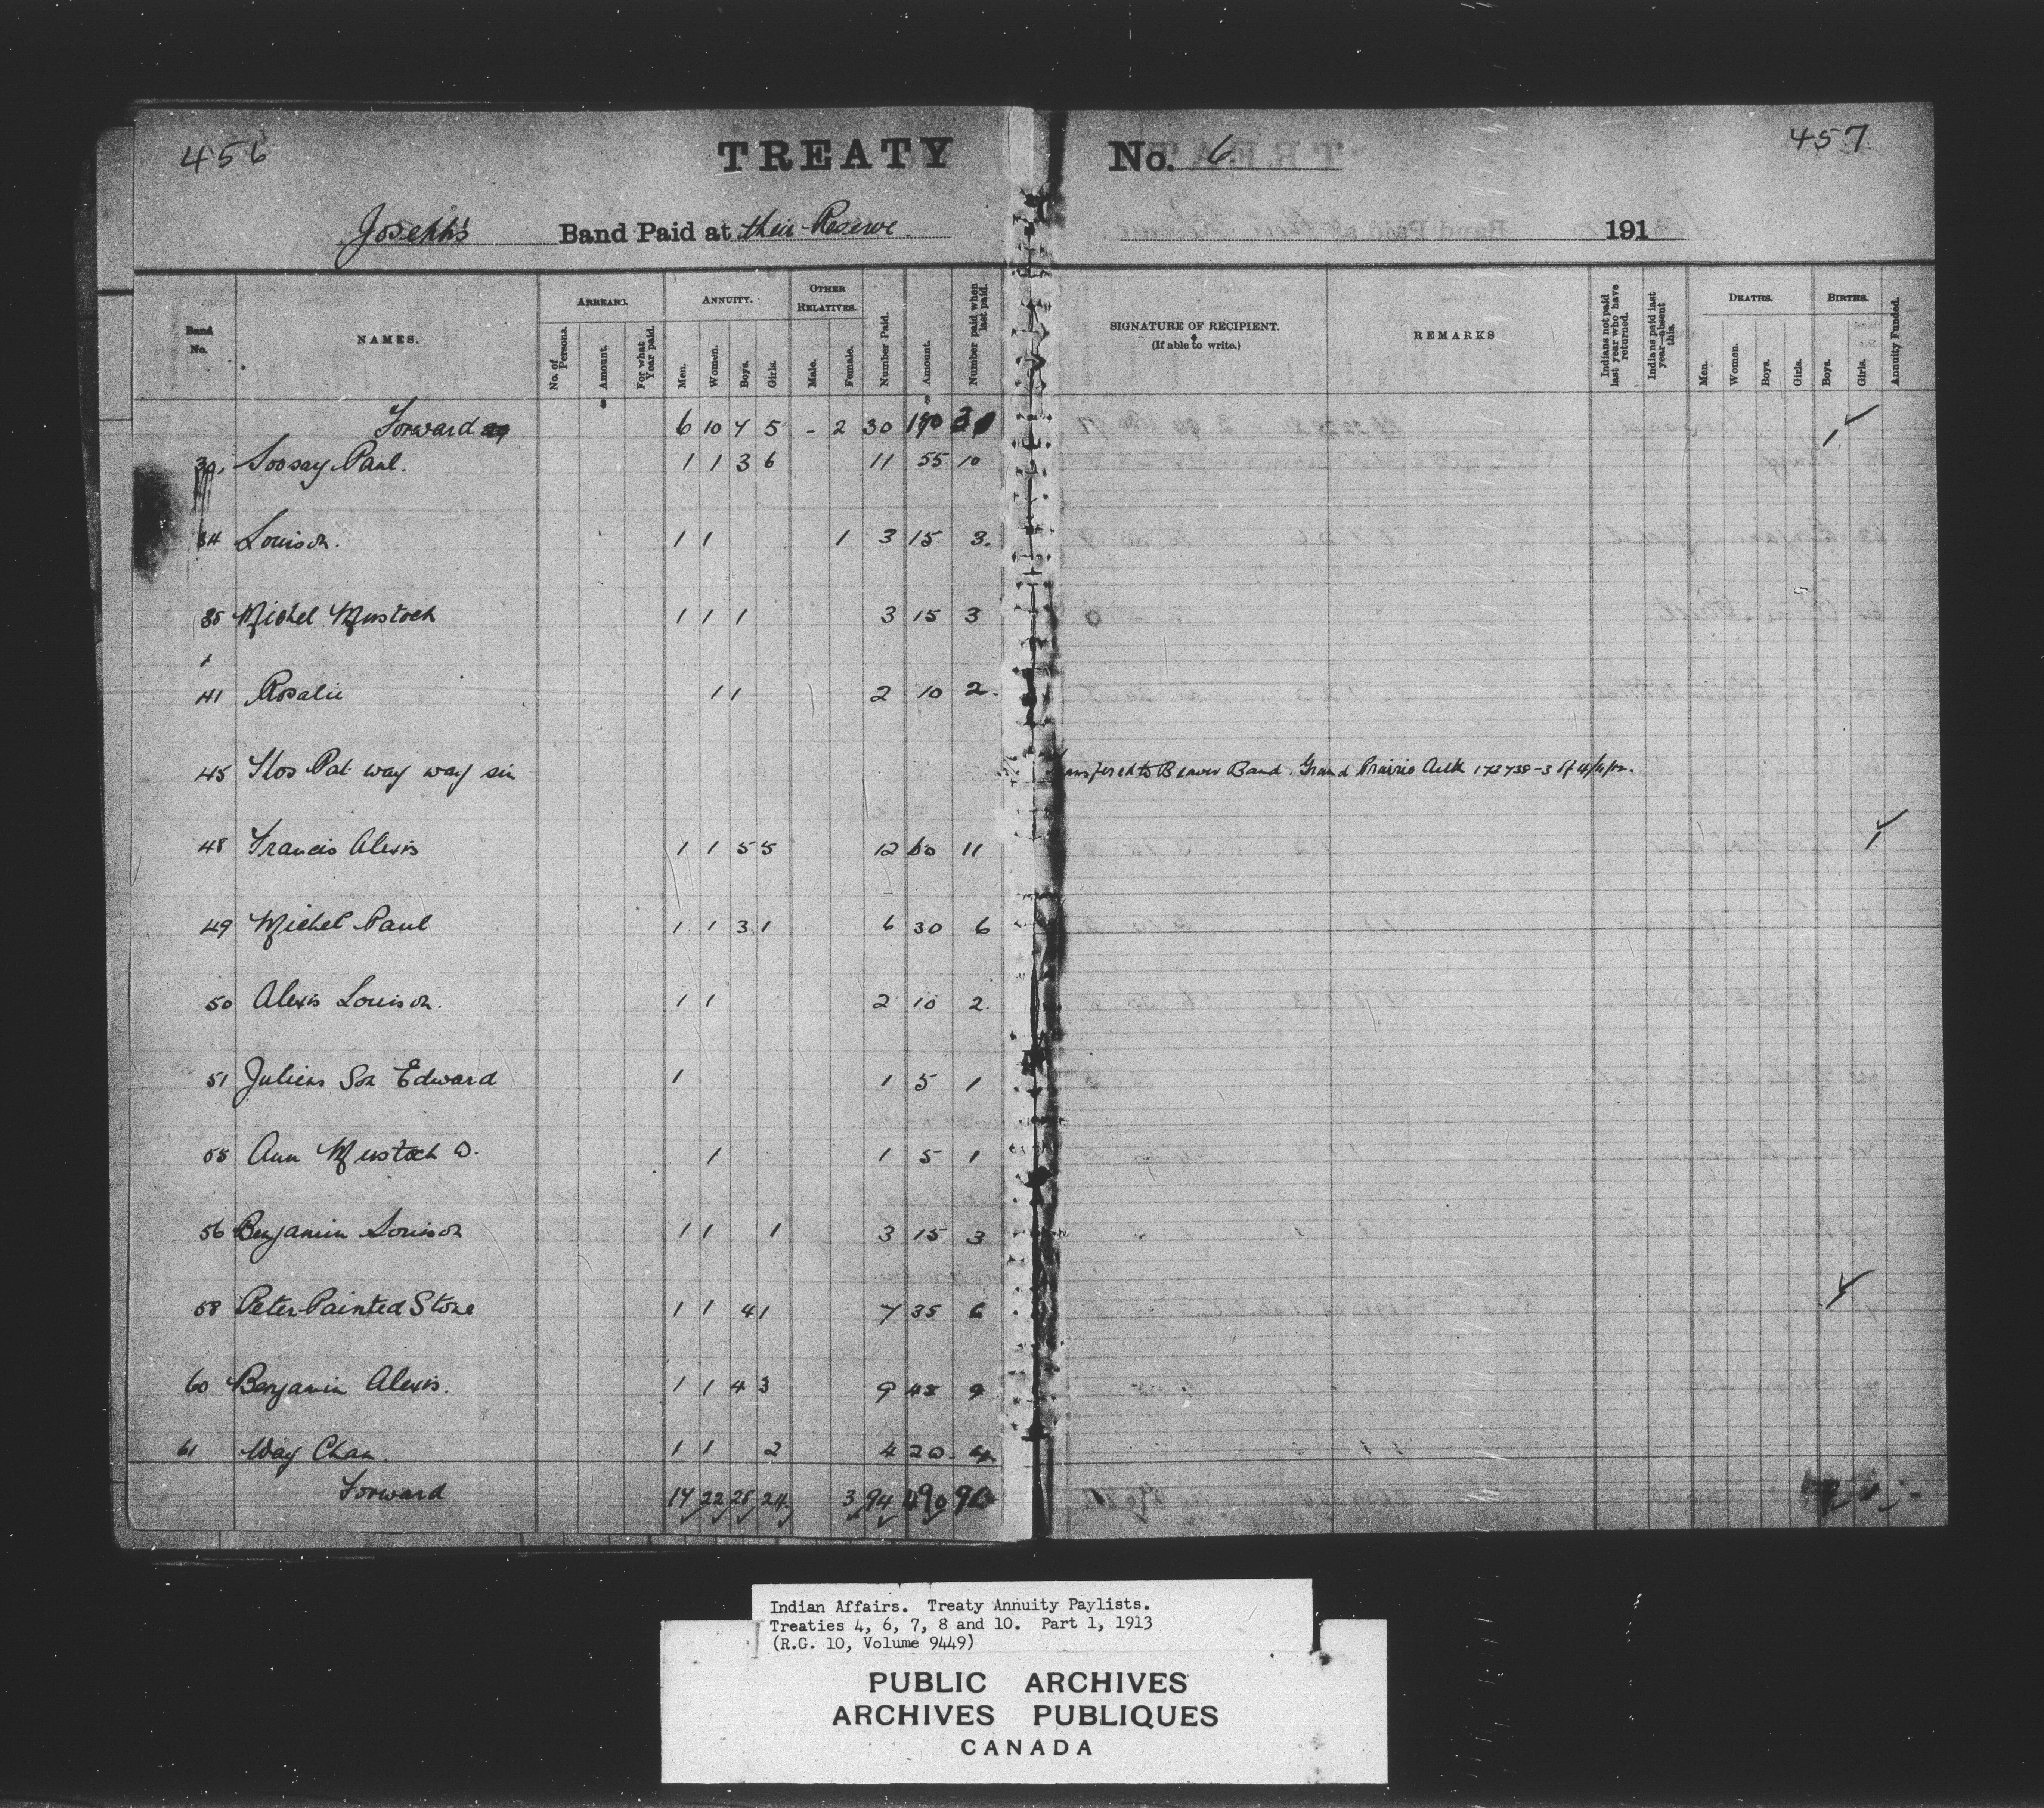 456
TREATY No. 6.
457
Joseph's Band Paid at their Reserve. 191
Band No.
NAMES.
ARREARS.
No. of Persons.
Amount.
For what Year paid.
ANNUITY.
Men.
Women.
Boys.
Girls.
OTHER RELATIVES.
Male.
Female.
Number Paid.
Amount.
Number paid when last paid.
SIGNATURE OF RECIPIENT.
(If able to write.)
REMARKS
Indians not paid last year who have returned.
Indians paid last year—absent this.
DEATHS.
Men.
Women.
Boys.
Girls.
BIRTHS.
Boys.
Girls.
Annuity Funded.
Forward 6 10 7 5 - 2 30
Soosay Paul. 1 1 3 6 11 55 10 1
34 Louison. 1 1 1 3 15 3.
35 Michel Mustoch 1 1 1 3 15 3
41 Rosalie 1 1 2 10 2.
45 Pat way way sin Beaver Band. Grand Prairie
48 Francis Alexis 1 1 5 5 12 60 11 1
49 Michel Paul 1 1 3 1 6 30 6
50 Alexis Louison. 1 1 2 10 2.
51 Juliens Son Edward 1 1 5 1
55 Ann Mustoch W. 1 1 5 1
56 Benjamin Louison 1 1 1 3 15 3
58 Peter Painted Stone 1 1 4 1 7 35 6
60 Benjamin Alexis. 1 1 4 3 9 45 9
61 Way Chan. 1 1 2 4 20 4
Forward 17 22 28 24 3 94
Indian Affairs. Treaty Annuity Paylists.
Treaties 4, 6, 7, 8 and 10. Part 1, 1913
(R.G. 10, Volume 9449)
PUBLIC ARCHIVES
ARCHIVES PUBLIQUES
CANADA